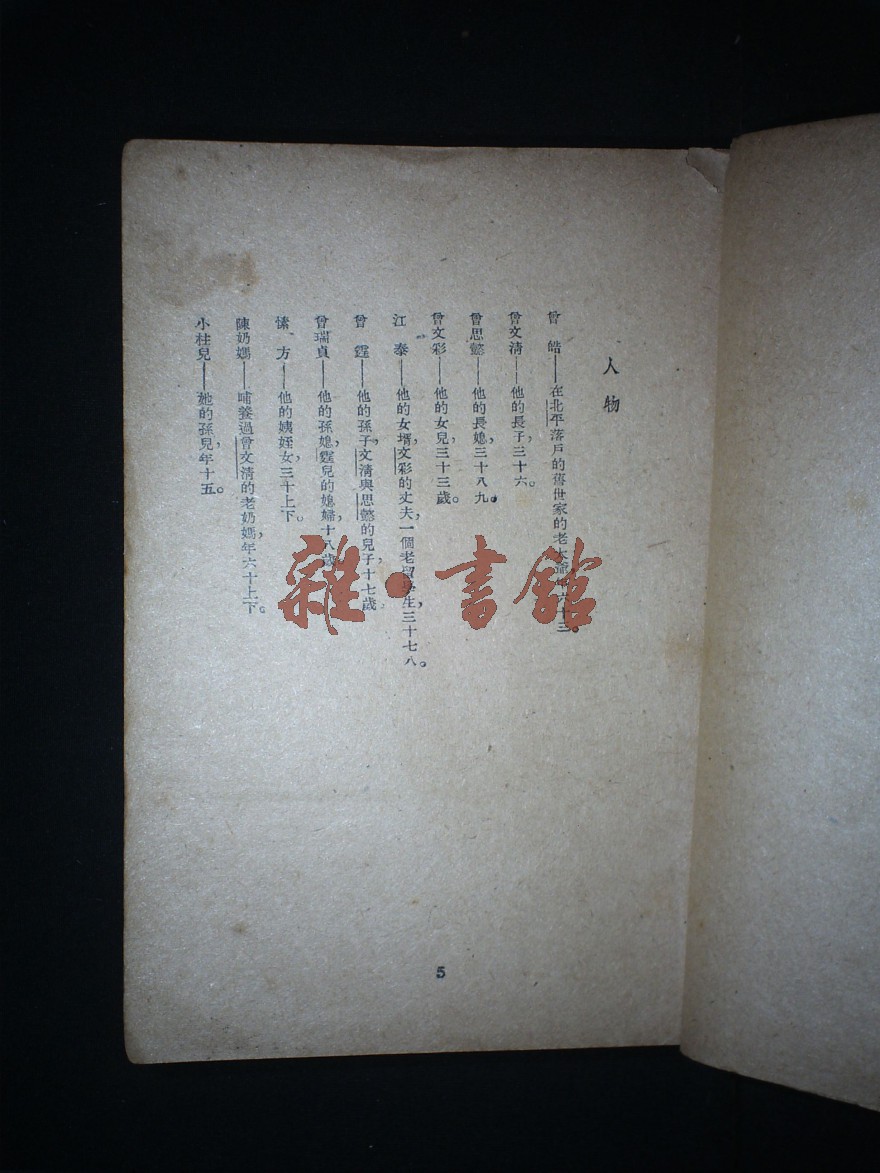 人物
曾　皓——在北平落戶的舊世家的老太爺，年六十三。
曾文清——他的長子，三十六。
曾思懿——他的長媳，三十八九。
曾文彩——他的女兒，三十三歲。
江　泰——他的女壻，文彩的丈夫，一個老留學生，三十七八。
曾　霆——他的孫子，文清與思懿的兒子，十七歲。
曾瑞貞——他的孫媳，霆兒的媳婦，十八歲。
愫　方——他的姨姪女，三十上下。
陳奶媽——哺養過曾文清的老奶媽，年六十上下。
小柱兒——她的孫兒，年十五。
5
雜·書館